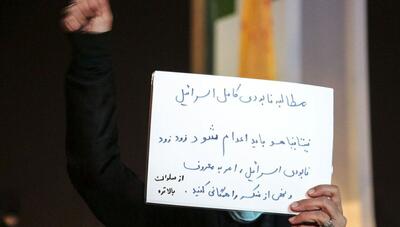 مطالبه نابودی کامل اسرائیل
نیتانیاهو باید اعدام شود زود زود
نابودی اسرائیل، امر به معروف
و نهی از منکر را همگانی کنید.
از صلوات
بالاتره